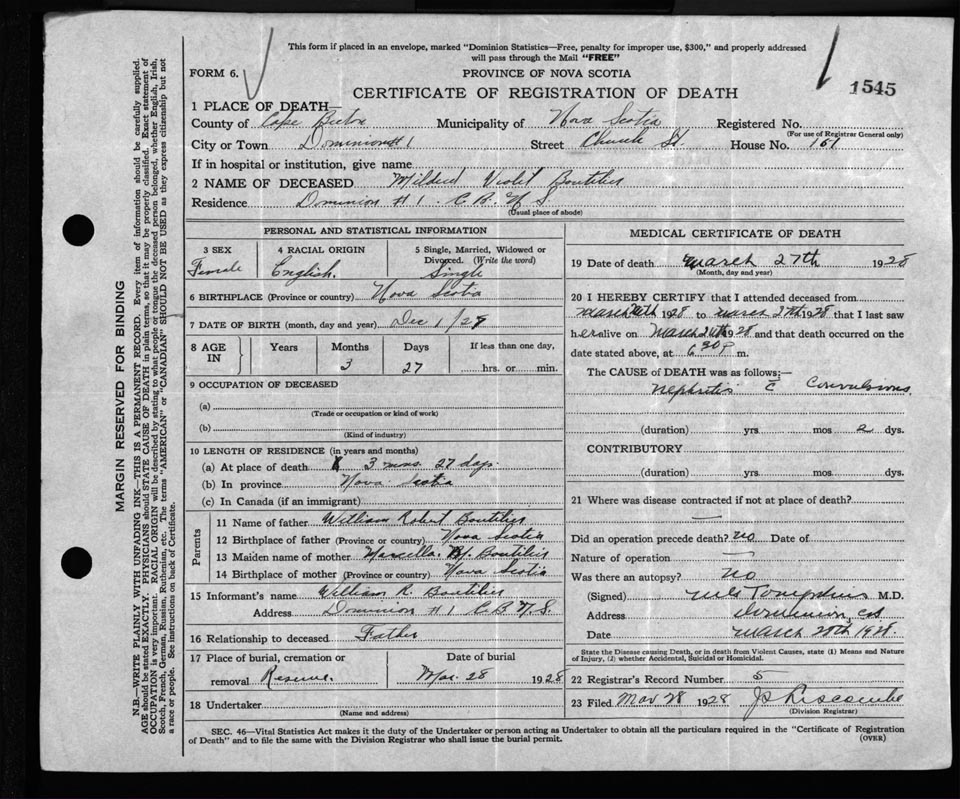 This form if placed in an envelope, marked "Dominion Statistics—Free, penalty for improper use, $300," and properly addressed
will pass through the Mail "FREE"
FORM 6.
PROVINCE OF NOVA SCOTIA
1545
CERTIFICATE OF REGISTRATION OF DEATH
1 PLACE OF DEATH—
County of Cape Breton Municipality of Nova Scotia Registered No.
(For use of Registrar General only)
City or Town Dominion #1 Street Church St. House No. 151
If in hospital or institution, give name
2 NAME OF DECEASED Mildred Violet Boutilier
Residence Dominion #1. C.B. N.S.
(Usual place of abode)
PERSONAL AND STATISTICAL INFORMATION
3 SEX 4 RACIAL ORIGIN 5 Single, Married, Widowed or
Divorced. (Write the word)
Female English. Single
6 BIRTHPLACE (Province or country) Nova Scotia
7 DATE OF BIRTH (month, day and year) Dec 1/28
8 AGE IN Years Months Days If less than one day,
3 27 hrs. or min.
9 OCCUPATION OF DECEASED
(a)
(Trade or occupation or kind of work)
(b)
(Kind of industry)
10 LENGTH OF RESIDENCE (in years and months)
(a) At place of death 3 mos. 27 days.
(b) In province Nova Scotia
(c) In Canada (if an immigrant)
Parents
11 Name of father William Robert Boutilier
12 Birthplace of father (Province or country) Nova Scotia
13 Maiden name of mother Marcella Boutilier
14 Birthplace of mother (Province or country) Nova Scotia
15 Informant's name William R. Boutilier
Address Dominion #1 C.B N.S.
16 Relationship to deceased Father
17 Place of burial, cremation or Date of burial
removal Reserve. Mar. 28 1928
18 Undertaker
(Name and address)
MEDICAL CERTIFICATE OF DEATH
19 Date of death March 27th 1928
(Month, day and year)
20 I HEREBY CERTIFY that I attended deceased from
March 26th 1928 to March 27th 1928 that I last saw
her alive on March 26th 1928 and that death occurred on the
date stated above, at 6 30 P m.
The CAUSE of DEATH was as follows:—
Nephritis c̄ Convulsions
(duration) yrs mos 2 dys.
CONTRIBUTORY
(duration) yrs mos dys.
21 Where was disease contracted if not at place of death?
—
Did an operation precede death? no Date of
Nature of operation —
Was there an autopsy? no
(Signed) Tompkins M.D.
Address Dominion, C.B
Date March 28th 1928.
State the Disease causing Death, or in death from Violent Causes, state (1) Means and Nature
of Injury, (2) whether Accidental, Suicidal or Homicidal.
22 Registrar's Record Number 5
23 Filed Mar 28 1928 Liscombe
(Division Registrar)
SEC. 46—Vital Statistics Act makes it the duty of the Undertaker or person acting as Undertaker to obtain all the particulars required in the "Certificate of Registration
of Death" and to file the same with the Division Registrar who shall issue the burial permit.
(OVER)
MARGIN RESERVED FOR BINDING
N.B.—WRITE PLAINLY WITH UNFADING INK—THIS IS A PERMANENT RECORD. Every item of information should be carefully supplied.
AGE should be stated EXACTLY. PHYSICIANS should STATE CAUSE OF DEATH in plain terms, so that it may be properly classified. Exact statement of
OCCUPATION is very important. RACIAL ORIGIN will be described by stating to what people or tongue the deceased person belonged, whether English, Irish,
Scotch, French, German, Russian, Ruthenian, etc. The terms "AMERICAN" or "CANADIAN" SHOULD NOT BE USED as they express citizenship but not
a race or people. See instructions on back of Certificate.